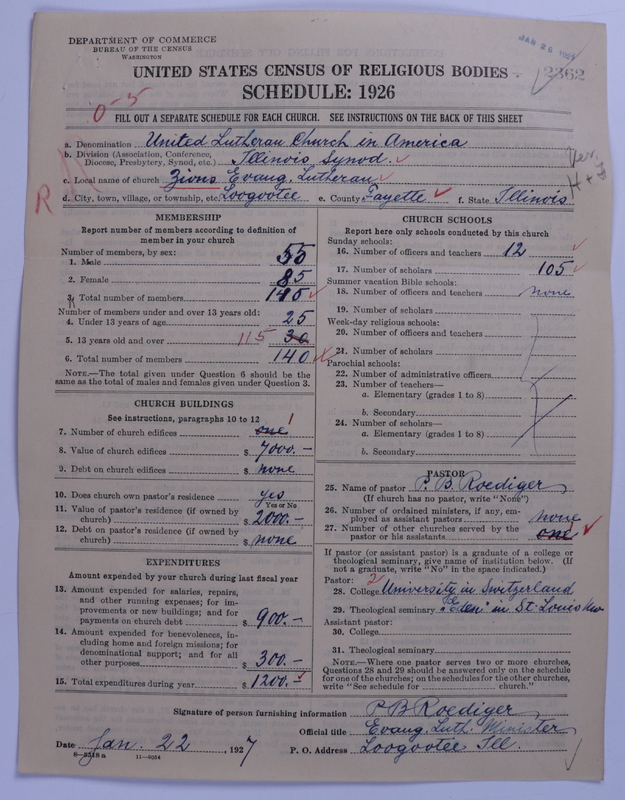 DEPARTMENT OF COMMERCE
BUREAU OF THE CENSUS
WASHINGTON
JAN 26
2362
UNITED STATES CENSUS OF RELIGIOUS BODIES
SCHEDULE: 1926
0-5
FILL OUT A SEPARATE SCHEDULE FOR EACH CHURCH. SEE INSTRUCTIONS ON THE BACK OF THIS SHEET
a. Denomination United Lutheran Church in America
b. Division (Association, Conference,
Diocese, Presbytery, Synod, etc.) Illinois Synod
Ver.
c. Local name of church Zions Evang. Lutheran
R
d. City, town, village, or township, etc. Loogootee e. County Fayette f. State Illinois
MEMBERSHIP
Report number of members according to definition of
member in your church
Number of members, by sex:
1. Male 55
2. Female 85
3. Total number of members 140
Number of members under and over 13 years old:
4. Under 13 years of age 25
5. 13 years old and over 115 30
6. Total number of members 140
NOTE.—The total given under Question 6 should be
same as the total of males and females given under Question 3.
CHURCH BUILDINGS
See instructions, paragraphs 10 to 12
7. Number of church edifices one 1
8. Value of church edifices $ 7000.-
9. Debt on church edifices $ none
10. Does church own pastor's residence yes
Yes or No
11. Value of pastor's residence (if owned by
church) $ 2000.-
12. Debt on pastor's residence (if owned by
church) $ none
EXPENDITURES
Amount expended by your church during last fiscal year
13. Amount expended for salaries, repairs,
and other running expenses; for im-
provements or new buildings; and for
payments on church debt $ 900.-
14. Amount expended for benevolences, in-
cluding home and foreign missions; for
denominational support; and for all
other purposes $ 300.-
15. Total expenditures during year $ 1200.-
CHURCH SCHOOLS
Report here only schools conducted by this church
Sunday schools:
16. Number of officers and teachers 12
17. Number of scholars 105
Summer vacation Bible schools:
18. Number of officers and teachers none
19. Number of scholars
Week-day religious schools:
20. Number of officers and teachers
21. Number of scholars
Parochial schools:
22. Number of administrative officers
23. Number of teachers—
a. Elementary (grades 1 to 8)
b. Secondary
24. Number of scholars—
a. Elementary (grades 1 to 8)
b. Secondary
PASTOR
25. Name of pastor P. B. Roediger
(If church has no pastor, write "None")
26. Number of ordained ministers, if any, em-
ployed as assistant pastors none
27. Number of other churches served by the
pastor or his assistants one
If pastor (or assistant pastor) is a graduate of a college or
theological seminary, give name of institution below. (If
not a graduate, write "No" in the space indicated.)
Pastor: 2
28. College University in Switzerland
29. Theological seminary "Eden" in St. Louis Mo
Assistant pastor:
30. College
31. Theological seminary
NOTE.—Where one pastor serves two or more churches,
Questions 28 and 29 should be answered only on the schedule
for one of the churches; on the schedules for the other churches,
write "See schedule for church."
Signature of person furnishing information P B Roediger
Official title Evang. Luth. Minister
Date Jan. 22, 1927 P. O. Address Loogootee Ill.
8-2518a 11-9054